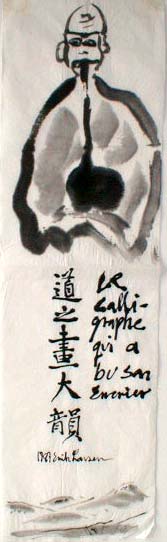 道之畫大韻
Le
Calli-
graphe
qui a
bu son
Encrier
Erik Larsen